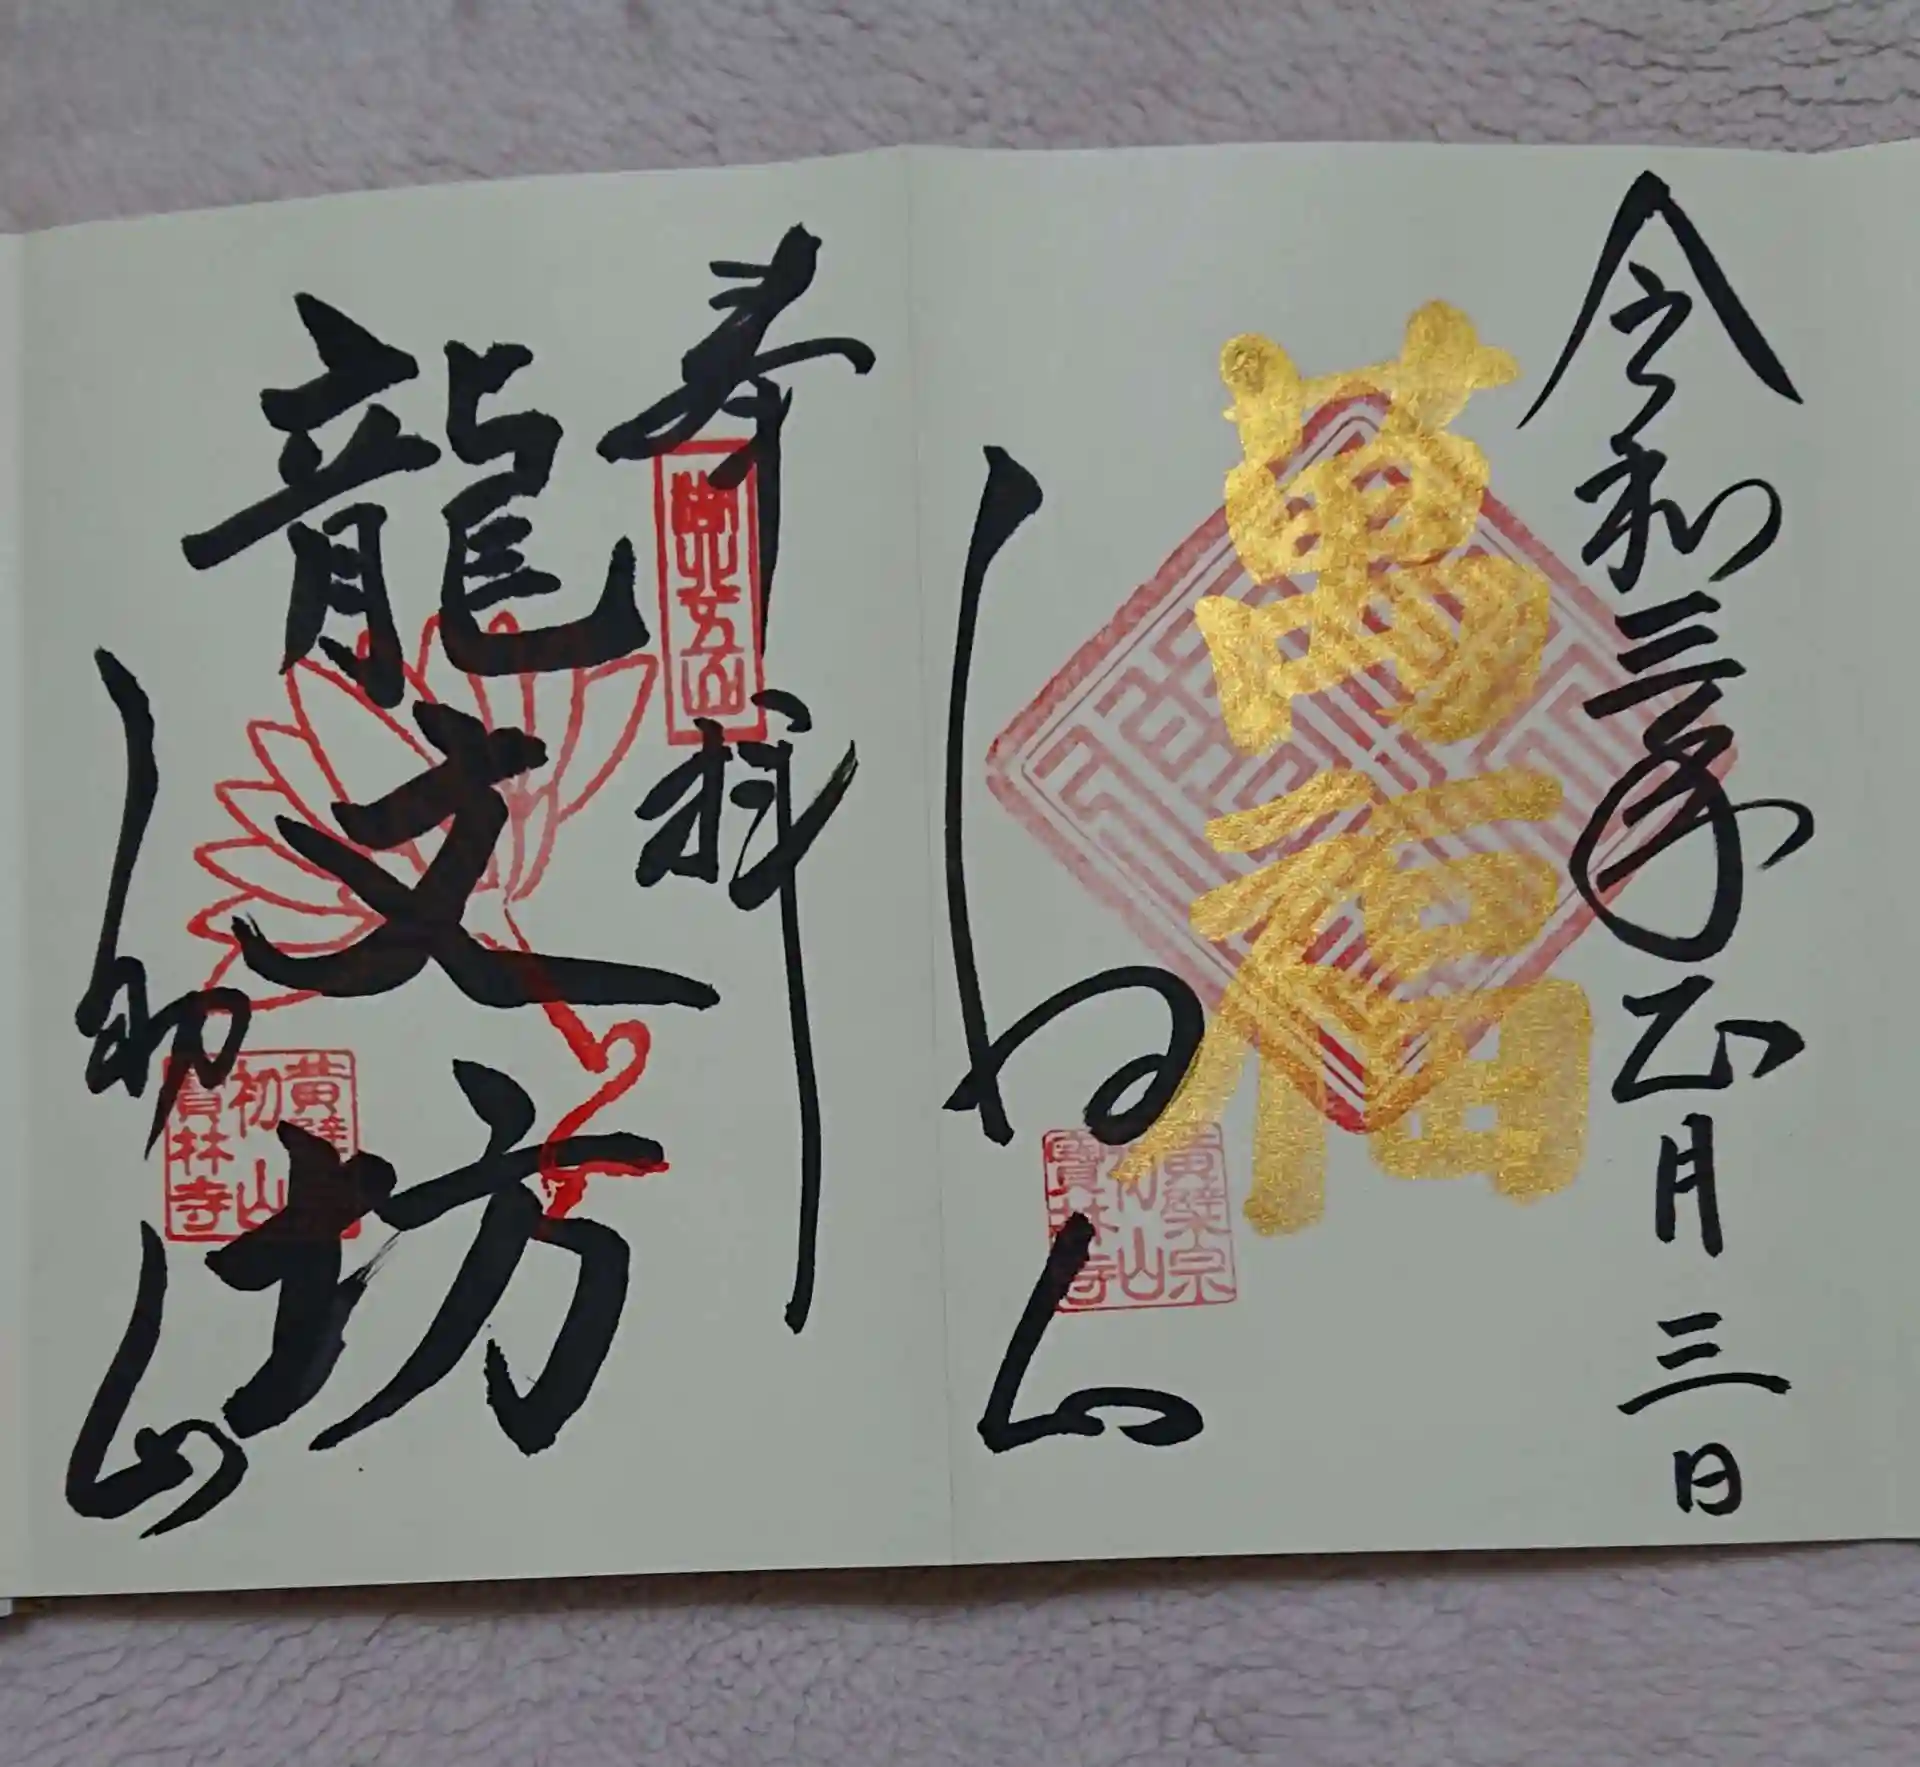 令和三年正月三日
萬福
黄檗宗
初山
寶林寺
奉拝
湖北五山
龍文坊
黄檗宗
初山
寶林寺